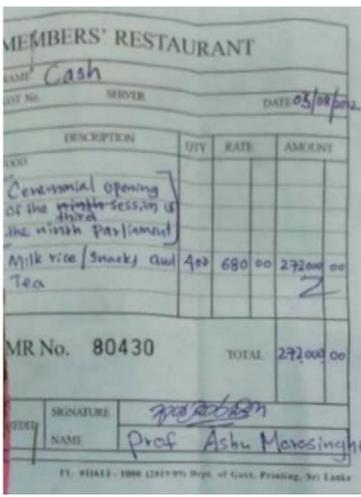 MEMBERS' RESTAURANT
NAME Cash
SERVER
DATE 03/08/
DESCRIPTION QTY RATE AMOUNT
FOOD
Ceremonial opening
of the ninth session of
third
the ninth Parliament
Milk rice / Snacks and 400 680 00 272000 00
Tea
MR No. 80430 TOTAL 272,000 00
SIGNATURE
CREDIT
NAME Prof Ashu Marasinghe
Dept. of Govt. Printing, Sri Lanka